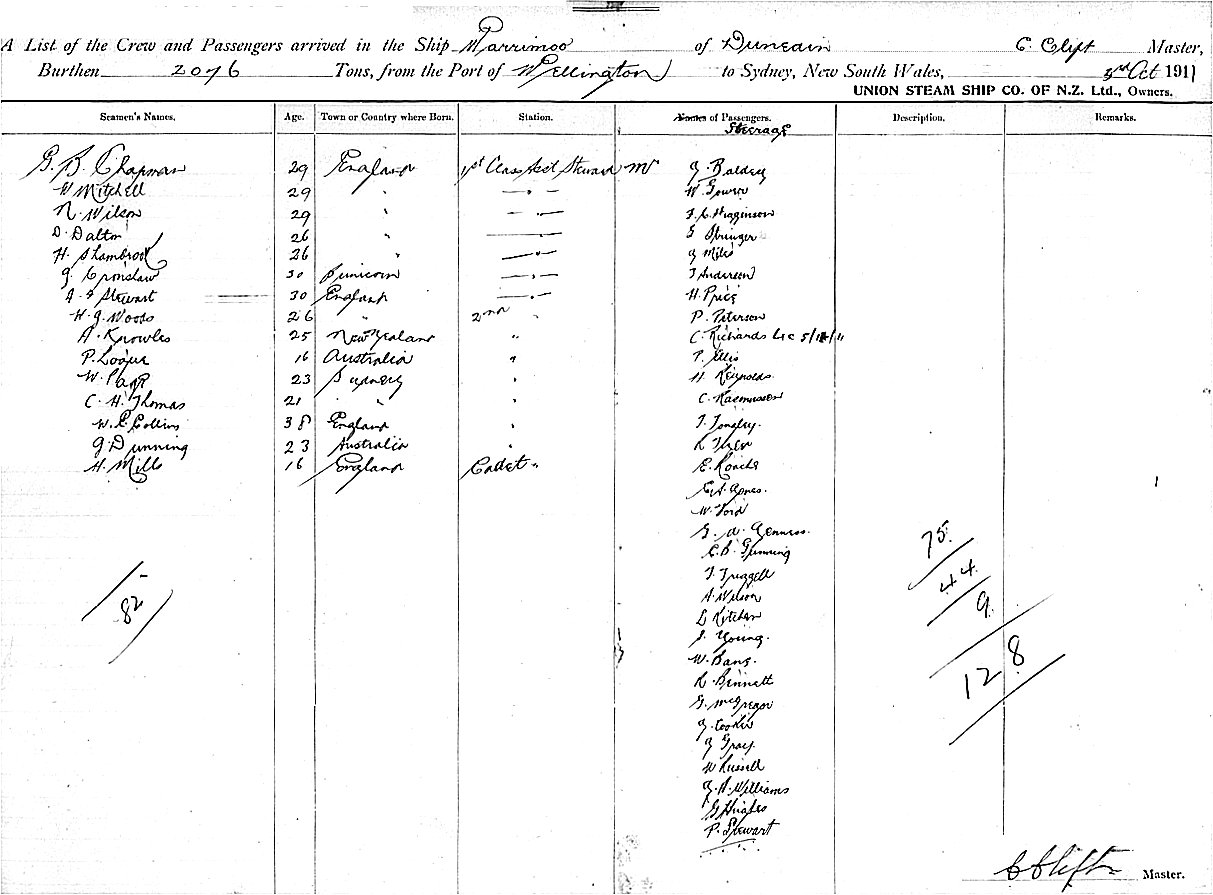 A List of the Crew and Passengers arrived in the Ship Warrimoo of Dunedin C. Clift Master,
Burthen 2076 Tons, from the Port of Wellington to Sydney, New South Wales, 3rd Oct 1911
UNION STEAM SHIP CO. OF N.Z. Ltd., Owners.
Seamen's Names. Age. Town or Country where Born. Station. Names of Passengers. Description. Remarks.
Steerage
G. B. Chapman 29 England 1st Class Asst Steward Mr J. Baldry
W Mitchell 29 " — " — W.
N. Wilson 29 " — " — F. C. Higginson
D. Dalton 26 " S Springer
H. Shambrook 26 " — " — J Miles
J. Cronshaw 30 Dunedin — " — J Anderson
A. F Stewart 30 England — " — H. Price
W. J. Woods 26 " 2nd " P. Peterson
A. Knowles 25 New Zealand " C. Richards 5/11/11
P. 16 Australia " T. Ellis
W. Parr 23 Sydney " H. Reynolds
C. H. Thomas 21 " " " C. Rasmussen
W. E Collins 38 England " T. Longley.
J. Dunning 23 Australia " R
H. Mills 16 England Cadet " E. Roache
Agnes.
W. Ford
G. W. Jenness.
C. B. Gunning
75
F. Triggell
44
82
A. Wilson
9
L Kitchen
128
S. Young.
W. Bang.
R. Bennett
G. McGregor
J. Cooker
J Gray.
W Russell
J. A. Williams
G Hughes
P. Stewart
C Clift Master.